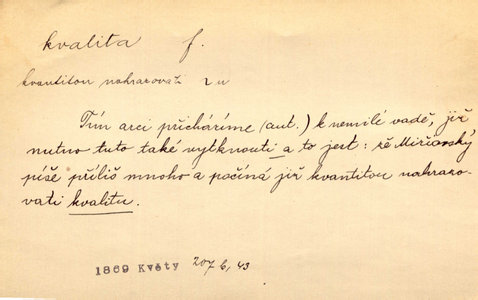 kvalita f.
kvantitou nahrazovati
Tím arci přicházíme (aut.) k nemilé vadě, již
nutno tuto také vytknouti a to jest: že Mirďanský
píše příliš mnoho a počíná již kvantitou nahrazo-
vati kvalitu.
1869 Květy 207 b, 43